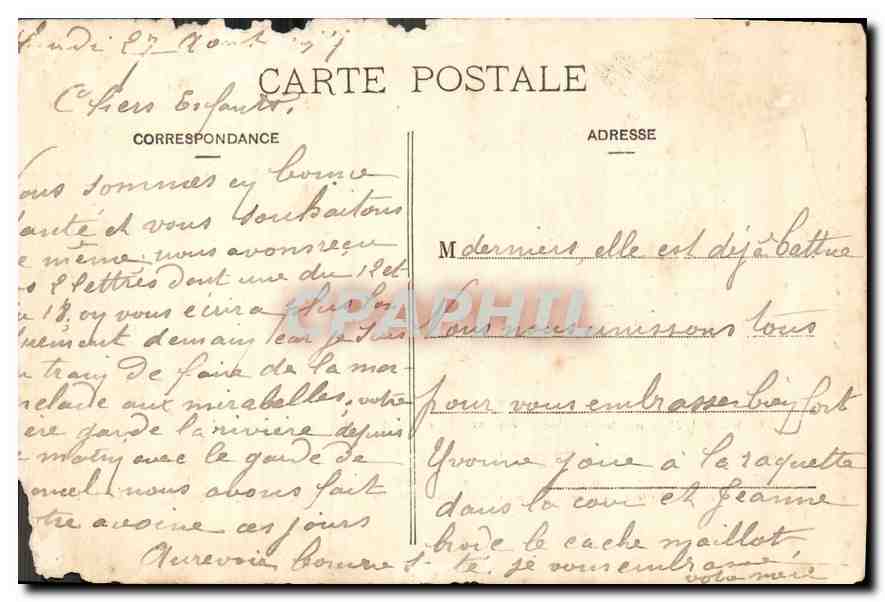 27 Août
CARTE POSTALE
Chers Enfants,
CORRESPONDANCE
ous sommes en bonne
anté et vous souhaitons
e même, nous avons reçu
s 2 lettres dont une du 12 et
u 18. on vous écrira plus lon
uement demain car je suis
n train de faire de la mar-
elade aux mirabelles, votre
ère garde la rivière depuis
matin avec le garde de
nous avons fait
otre avoine ces jours
ADRESSE
M derniers, elle est déjà battue
Nous nous unissons tous
pour vous embrasser bien fort
Yvonne joue à la raquette
dans la cour et Jeanne
brode le cache maillot
Aurevoir bonne s té. je vous embrasse
votre mère
CPAPHIL